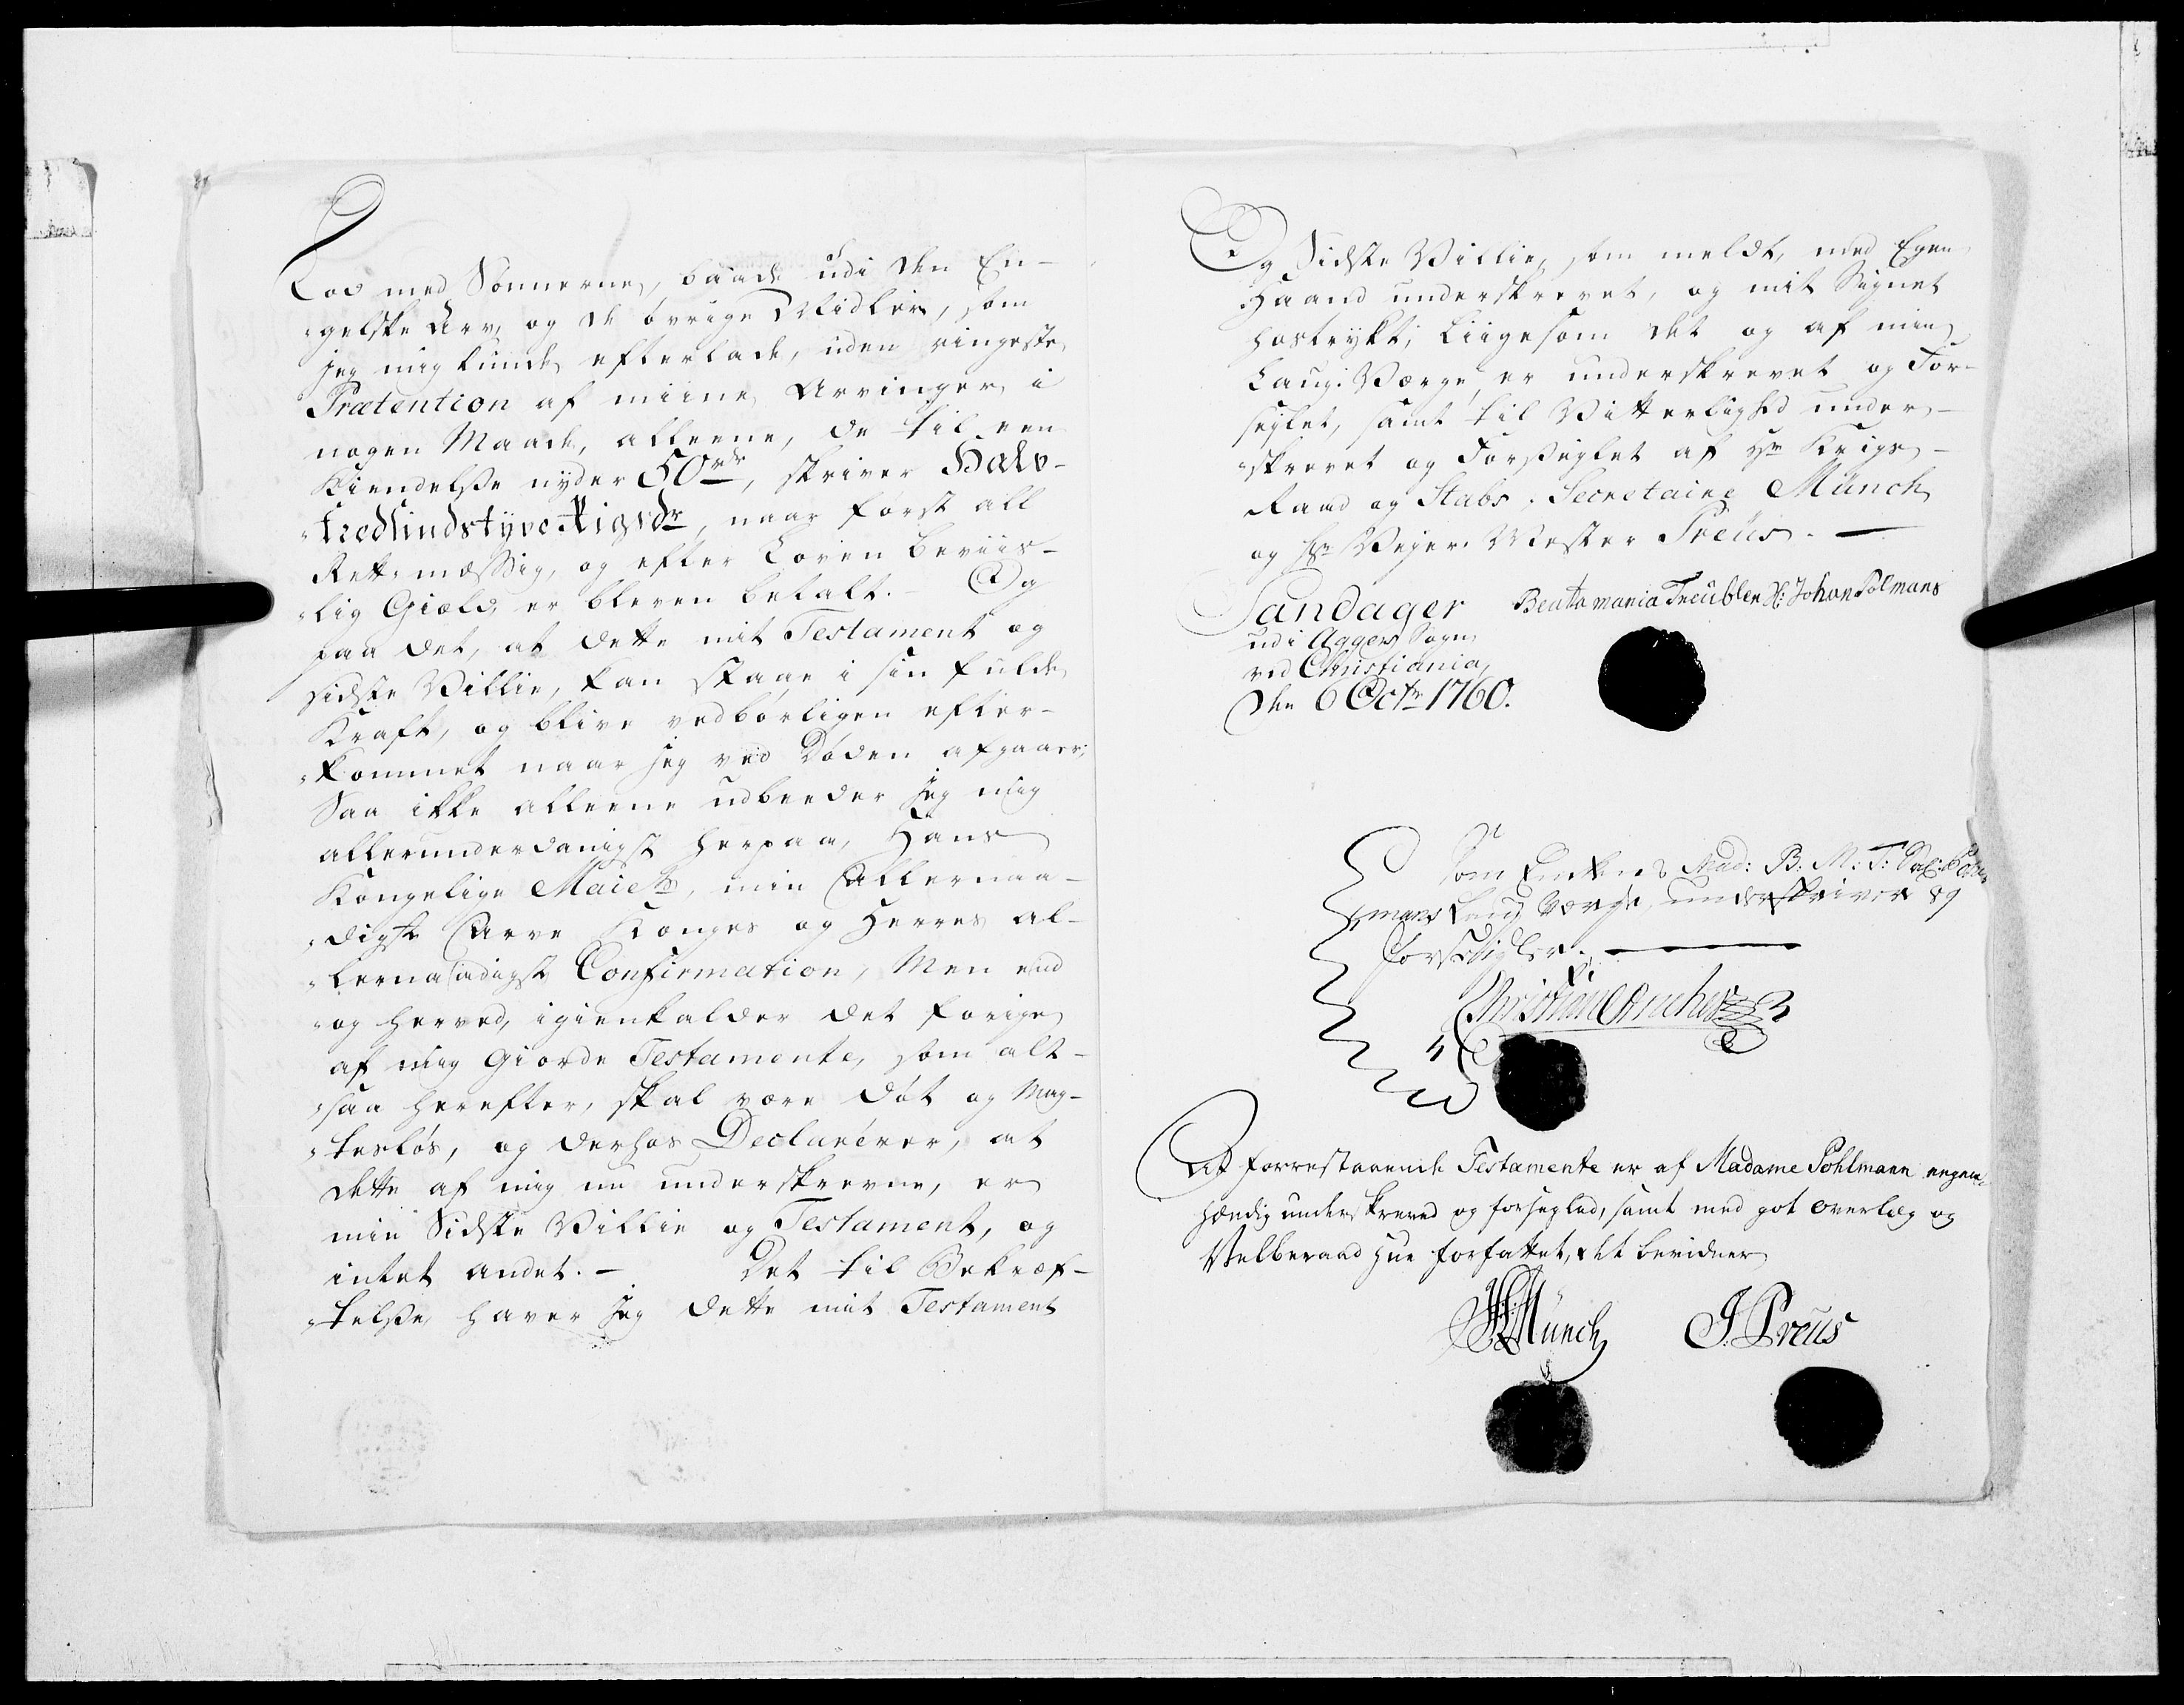 Lod med Sønnerne, baade udi den En-
gelske Arv, og de øvrige Midler, som
jeg mig kunde efterlade, uden ringeste
Prætention af miine Arvinger i
nogen Maade, alleene, de til een
Kiendelse nyder 50 rdr, skriver Halv-
tredsindstyve Rigsdr, naar først all
Rettmæssig, og efter Loven beviis-
lig Giæld, er bleven betalt. - Og
paa det, at dette mit Testament og
sidste Villie, kan staae i sin fulde
Kraft, og blive vedbørligen efter-
kommet naar jeg ved Døden afgaaer;
Saa ikke alleene udbeeder jeg mig
allerunderdanigst herpaa, Hans
Kongelige Maiets, min Allernaa-
digste Arve Konges og Herres al-
lernaadigste Confirmation, Men end
og herved, igienkalder det forige
af mig Giorde Testamente, som alt-
saa herefter, skal være død og Mag-
tesløs, og derhos Declarerer, at
dette af mig nu underskrevne, er
min Sidste Villie og Testament, og
intet andet. - Det til Bekræf-
telse, haver jeg dette mit Testament
Og Sidste Villie, som meldt, med Egen
Haand underskrevet, og mit Signet
hostrykt; Liigesom det og af min
Laug-Værge, er underskrevet og For-
seglet, samt til Vitterlighed under-
skrevet og Forseglet af Hr Krigs-
Raad og Stabs-Secretaire Münch
og Hr Vejer-Mester Preüs. -
Sandager Beata maria Treublen Sl: Johan Polmans
udi Aggers Sogn
ved Christiania,
den 6 Octr 1760.
Som Enkens Mad: B: M: T: Sal:
mans Laug Værge, underskriver og
forseigler. -
Christian
At forrestaaende Testamente er af Madame Pohlmann eegen-
hændig underskreved og forseglad, samt med got overlæg og
Velberaad Hue forfattet, det bevidner
Münch J: Preüs